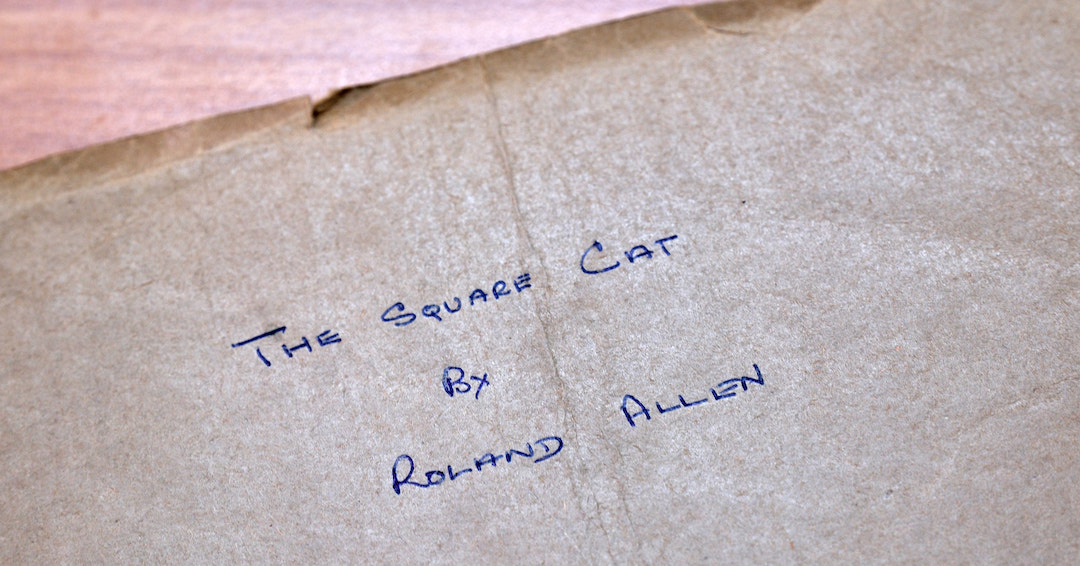 The Square Cat
By
Roland Allen